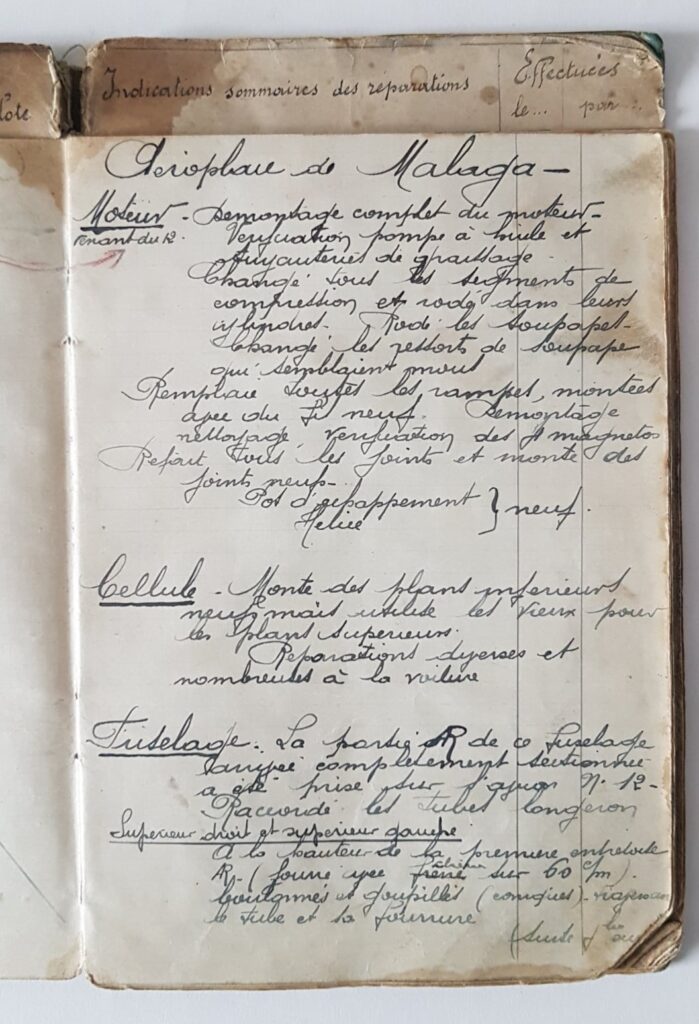 Indications sommaires des reparations
Effectuées
le... par...
Aeroplane de Malaga -
Moteur - Demontage complet du moteur -
venant du 12.
Verification pompe à huile et
tuyauteries de graissage.
Changé tous les segments de
compression et rodé dans leurs
cylindres. Rodé les soupapes -
Changé les ressorts de soupape
qui semblaient mous
Remplacé toutes les rampes, montées
avec du fil neuf. Demontage
nettoyage, verification des magnetos
Refait tous les joints et monté des
joints neufs -
Pot d'echappement } neuf.
Helice
Cellule - Monté des plans inferieurs
neufs mais utilisé les vieux pour
les plans superieurs.
Reparations diverses et
nombreuses à la voilure
Fuselage : La partie AR de ce fuselage
completement sectionnée
a été prise sur l'avion N° 12 -
Raccordé les tubes longeron
Superieur droit et superieur gauche
A la hauteur de la premiere entretoise
AR - (fourré avec frêne sur 60 c/m).
boutonnés et goupillés (coniques) -
le tube et sa fourrure
(suite